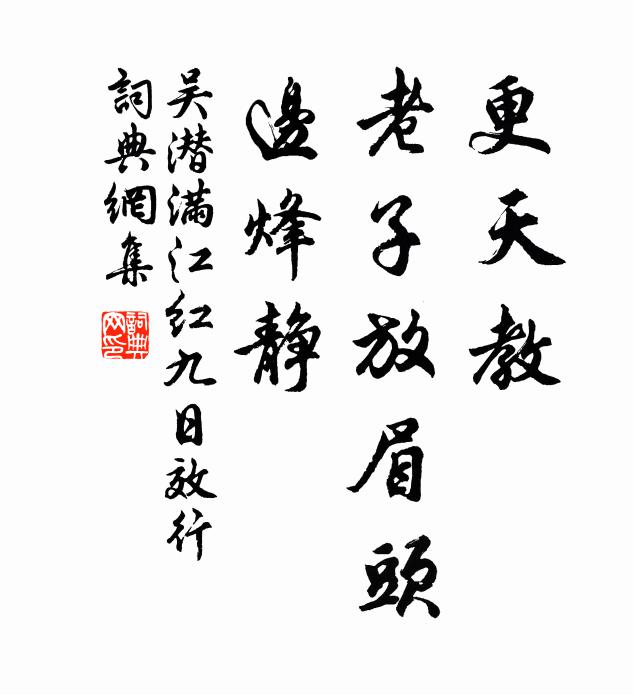 更天教
老子放眉頭
邊烽静
吴潜满江红九日效行
詞典網集
詞典网印